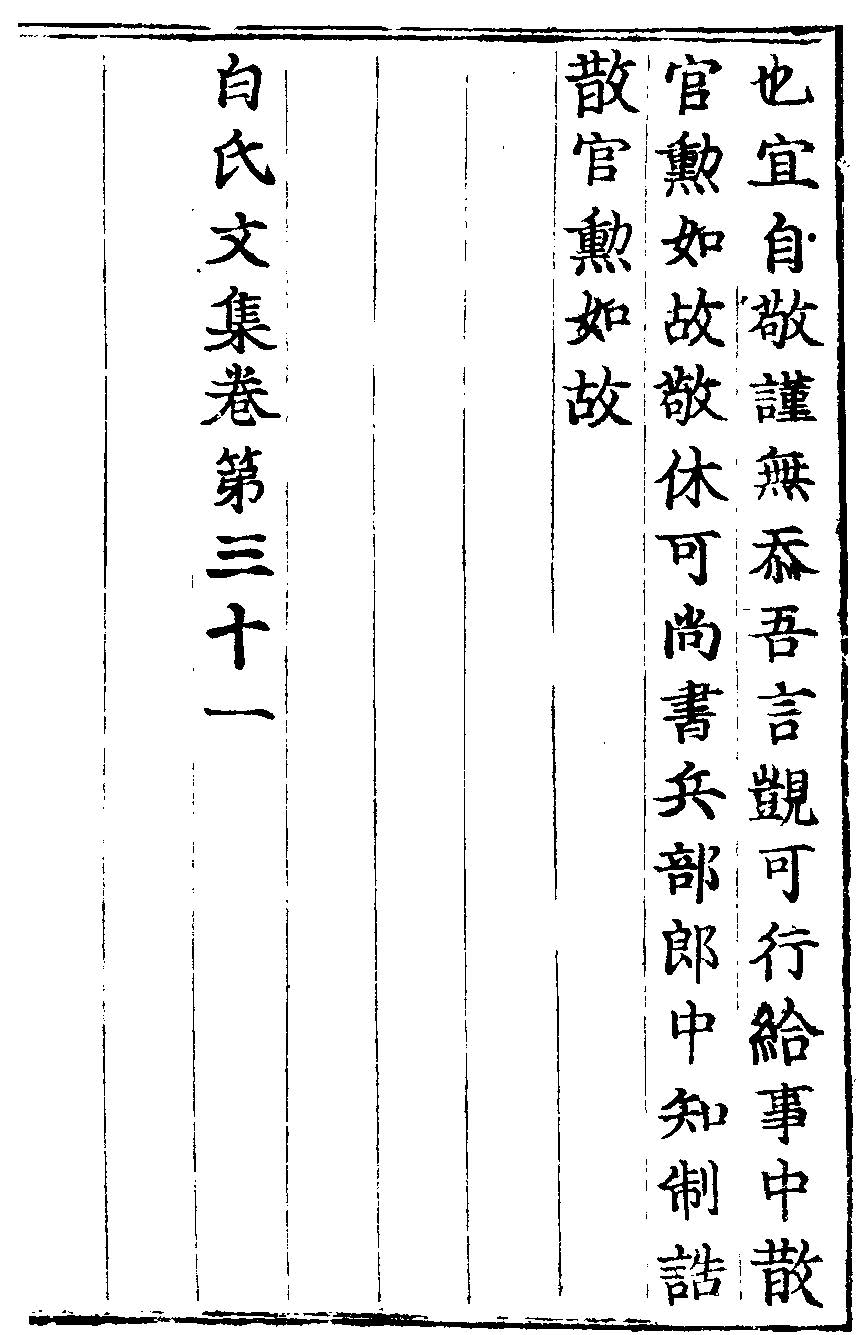 也宜自敬謹無忝吾言覬可行給事中散
官勲如故敬休可尚書兵部郎中知制誥
散官勲如故
白氏文集卷第三十一